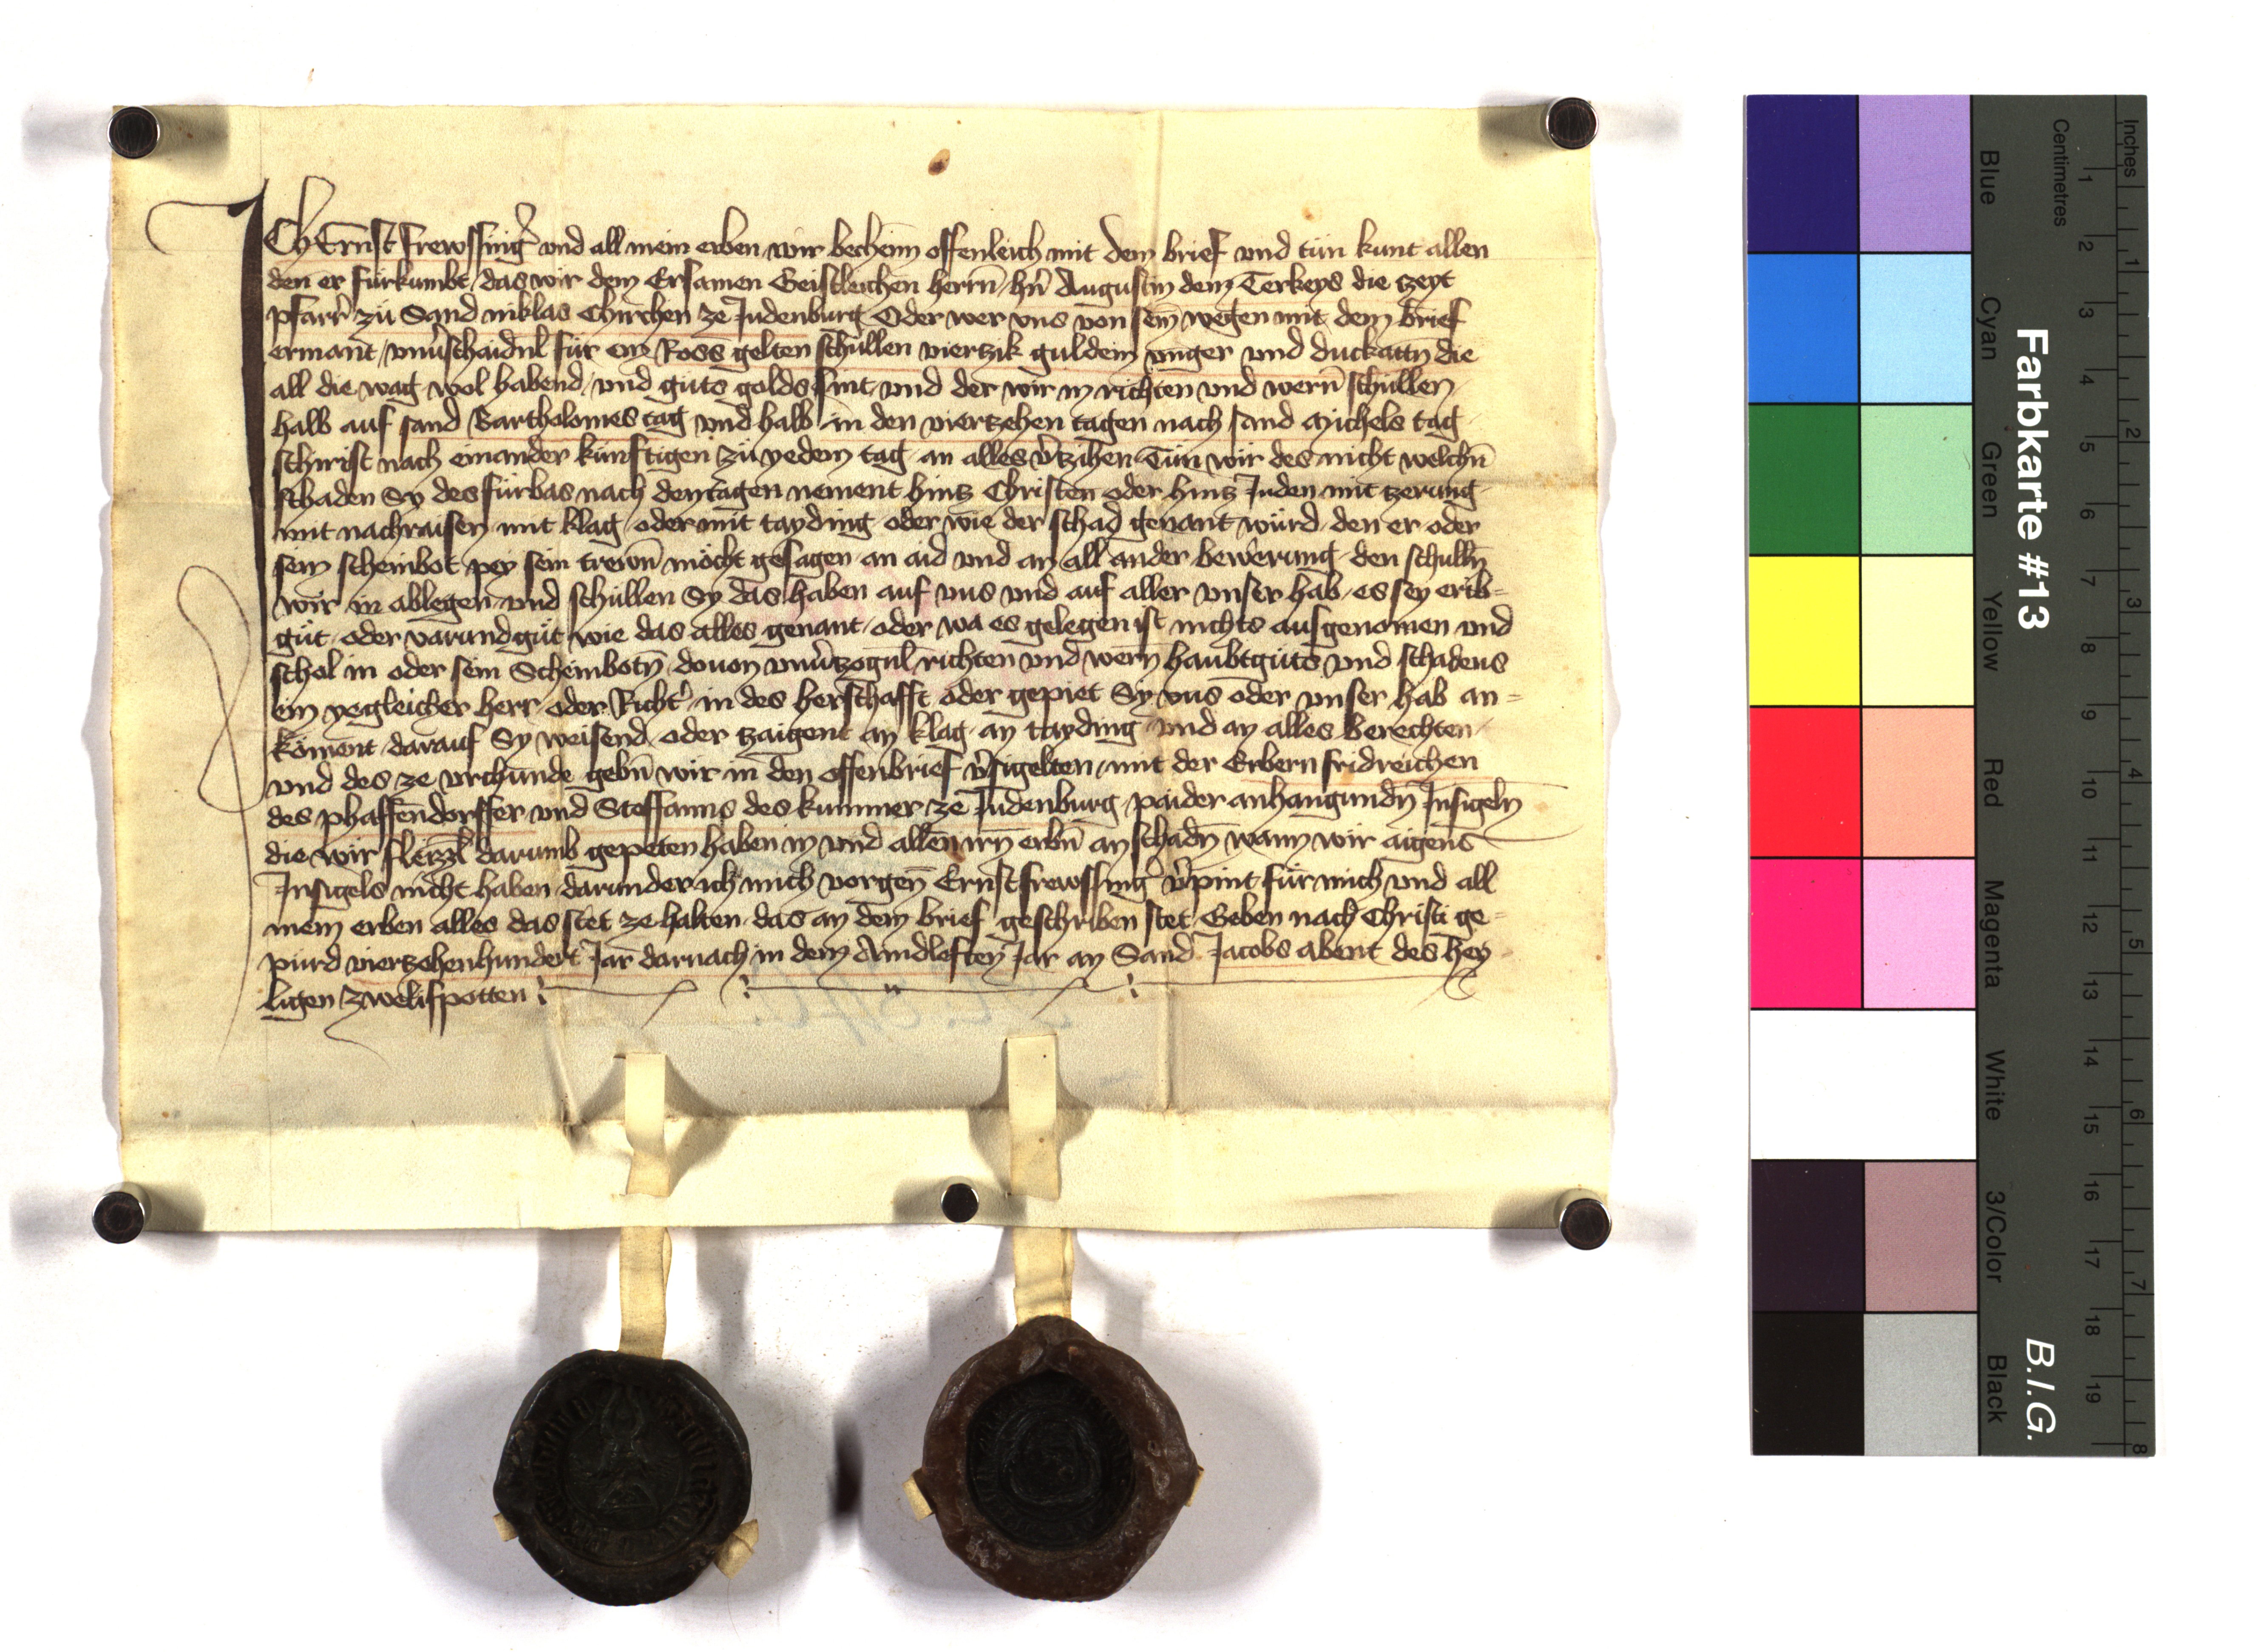 ICh Ernst frewssingᵉ vnd all mein erben wir bechenn offenleich mit dem brief vnd tün kunt allen
den er fürkumbt / das wir dem Ersamen Geistleichen herrn̄ / hn̄ Augustin dem Terkeys die zeyt
pfarr̄ zü Sand niklas Chirchen ze Judenburg Oder wer vns von sein̄ wegen mit dem brief
ermant / vnuschaidnl für ein Ross gelten schullen viertzik guldein vnger vnd duckattn̄ die
all die wag wol habend / vnd güts golds sint / vnd der wir in richten vnd wern̄ schullen /
halb auf sand Bartholomes tag vnd halb in den viertzehen tagen nach sand Michels tag
schirist nach einander künftigen zü yedem tag an alles vtzihen Tün wir des nicht welchn̄
schaden Sy des fürbas nach den tagen nement hintz Christen oder hintz Juden mit tzerung
mit nachraisen mit klag / oder mit tayding oder wie der schad genant würd den er oder
sein scheinbot pey sein trewn̄ möcht gesagen an aid vnd an all ander bewerung den schulln̄
wir in ablegen vnd schullen Sy das haben auf vns vnd auf aller vnser hab / es sey erib=
güt / oder varund güt wie das alles genant / oder wa es gelegen ist nichts ausgenomen vnd
schol in oder sein Scheinbotn̄ douon vnutzognl richten vnd wern̄ haubtgüts vnd schadens
ein yegleicher herr oder Richtᵉ in des herschafft oder gepiet Sy vns oder vnser hab an=
koment darauf Sy weisend oder tzaigent an klag / an tayding vnd an alles berechten /
vnd des ze vrchunde gebn̄ wir in den offenbrief vsigelten / mit der Erbern fridreichen
des phaffendorffer vnd Steffanns des kummer ze Judenburg paider anhangundn̄ Insigeln̄
die wir fleizzl darumb gepeten haben in vnd allen irn̄ erbn̄ an schadn̄ wann wir aigens
Insigels nicht haben / darunder ich mich vorgen̄ Ernst frewssingᵉ vpint für mich vnd all
mein erben alles das stet ze halten das an dem brief geschriben stet Geben nach Christi ge=
pürd viertzehenhundert Jar darnach in dem Aindleften Jar an Sand Jacobs abent des hey
ligen zwelifpotten
Farbkarte #13
B.I.G.
Blue Cyan Green Yellow Red Magenta White 3/Color Black
Centimetres
1 2 3 4 5 6 7 8 9 10 11 12 13 14 15 16 17 18 19
Inches
1 2 3 4 5 6 7 8